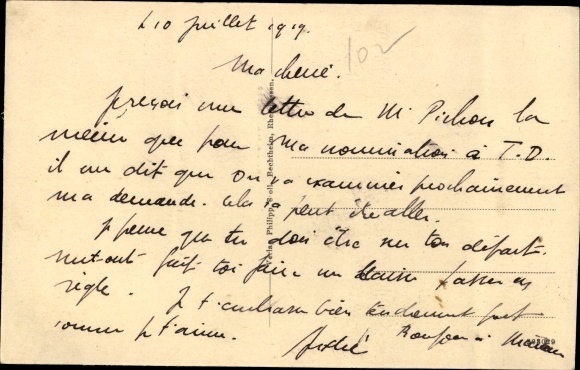 Le 10 juillet 1919.
102
Ma chérie.
je reçois une lettre de M Pichon la
même que pour ma nomination à T.O.
il me dit que on va examiner prochainement
ma demande. cela va peut être aller.
je pense que tu dois être sur ton départ.
surtout fait toi faire un laisser passer en
règle. Je t'embrasse bien tendrement fort
comme je t'aime.
André Bonjour à Maman
Verlag Philipp Bechtheim, Rheinhessen.